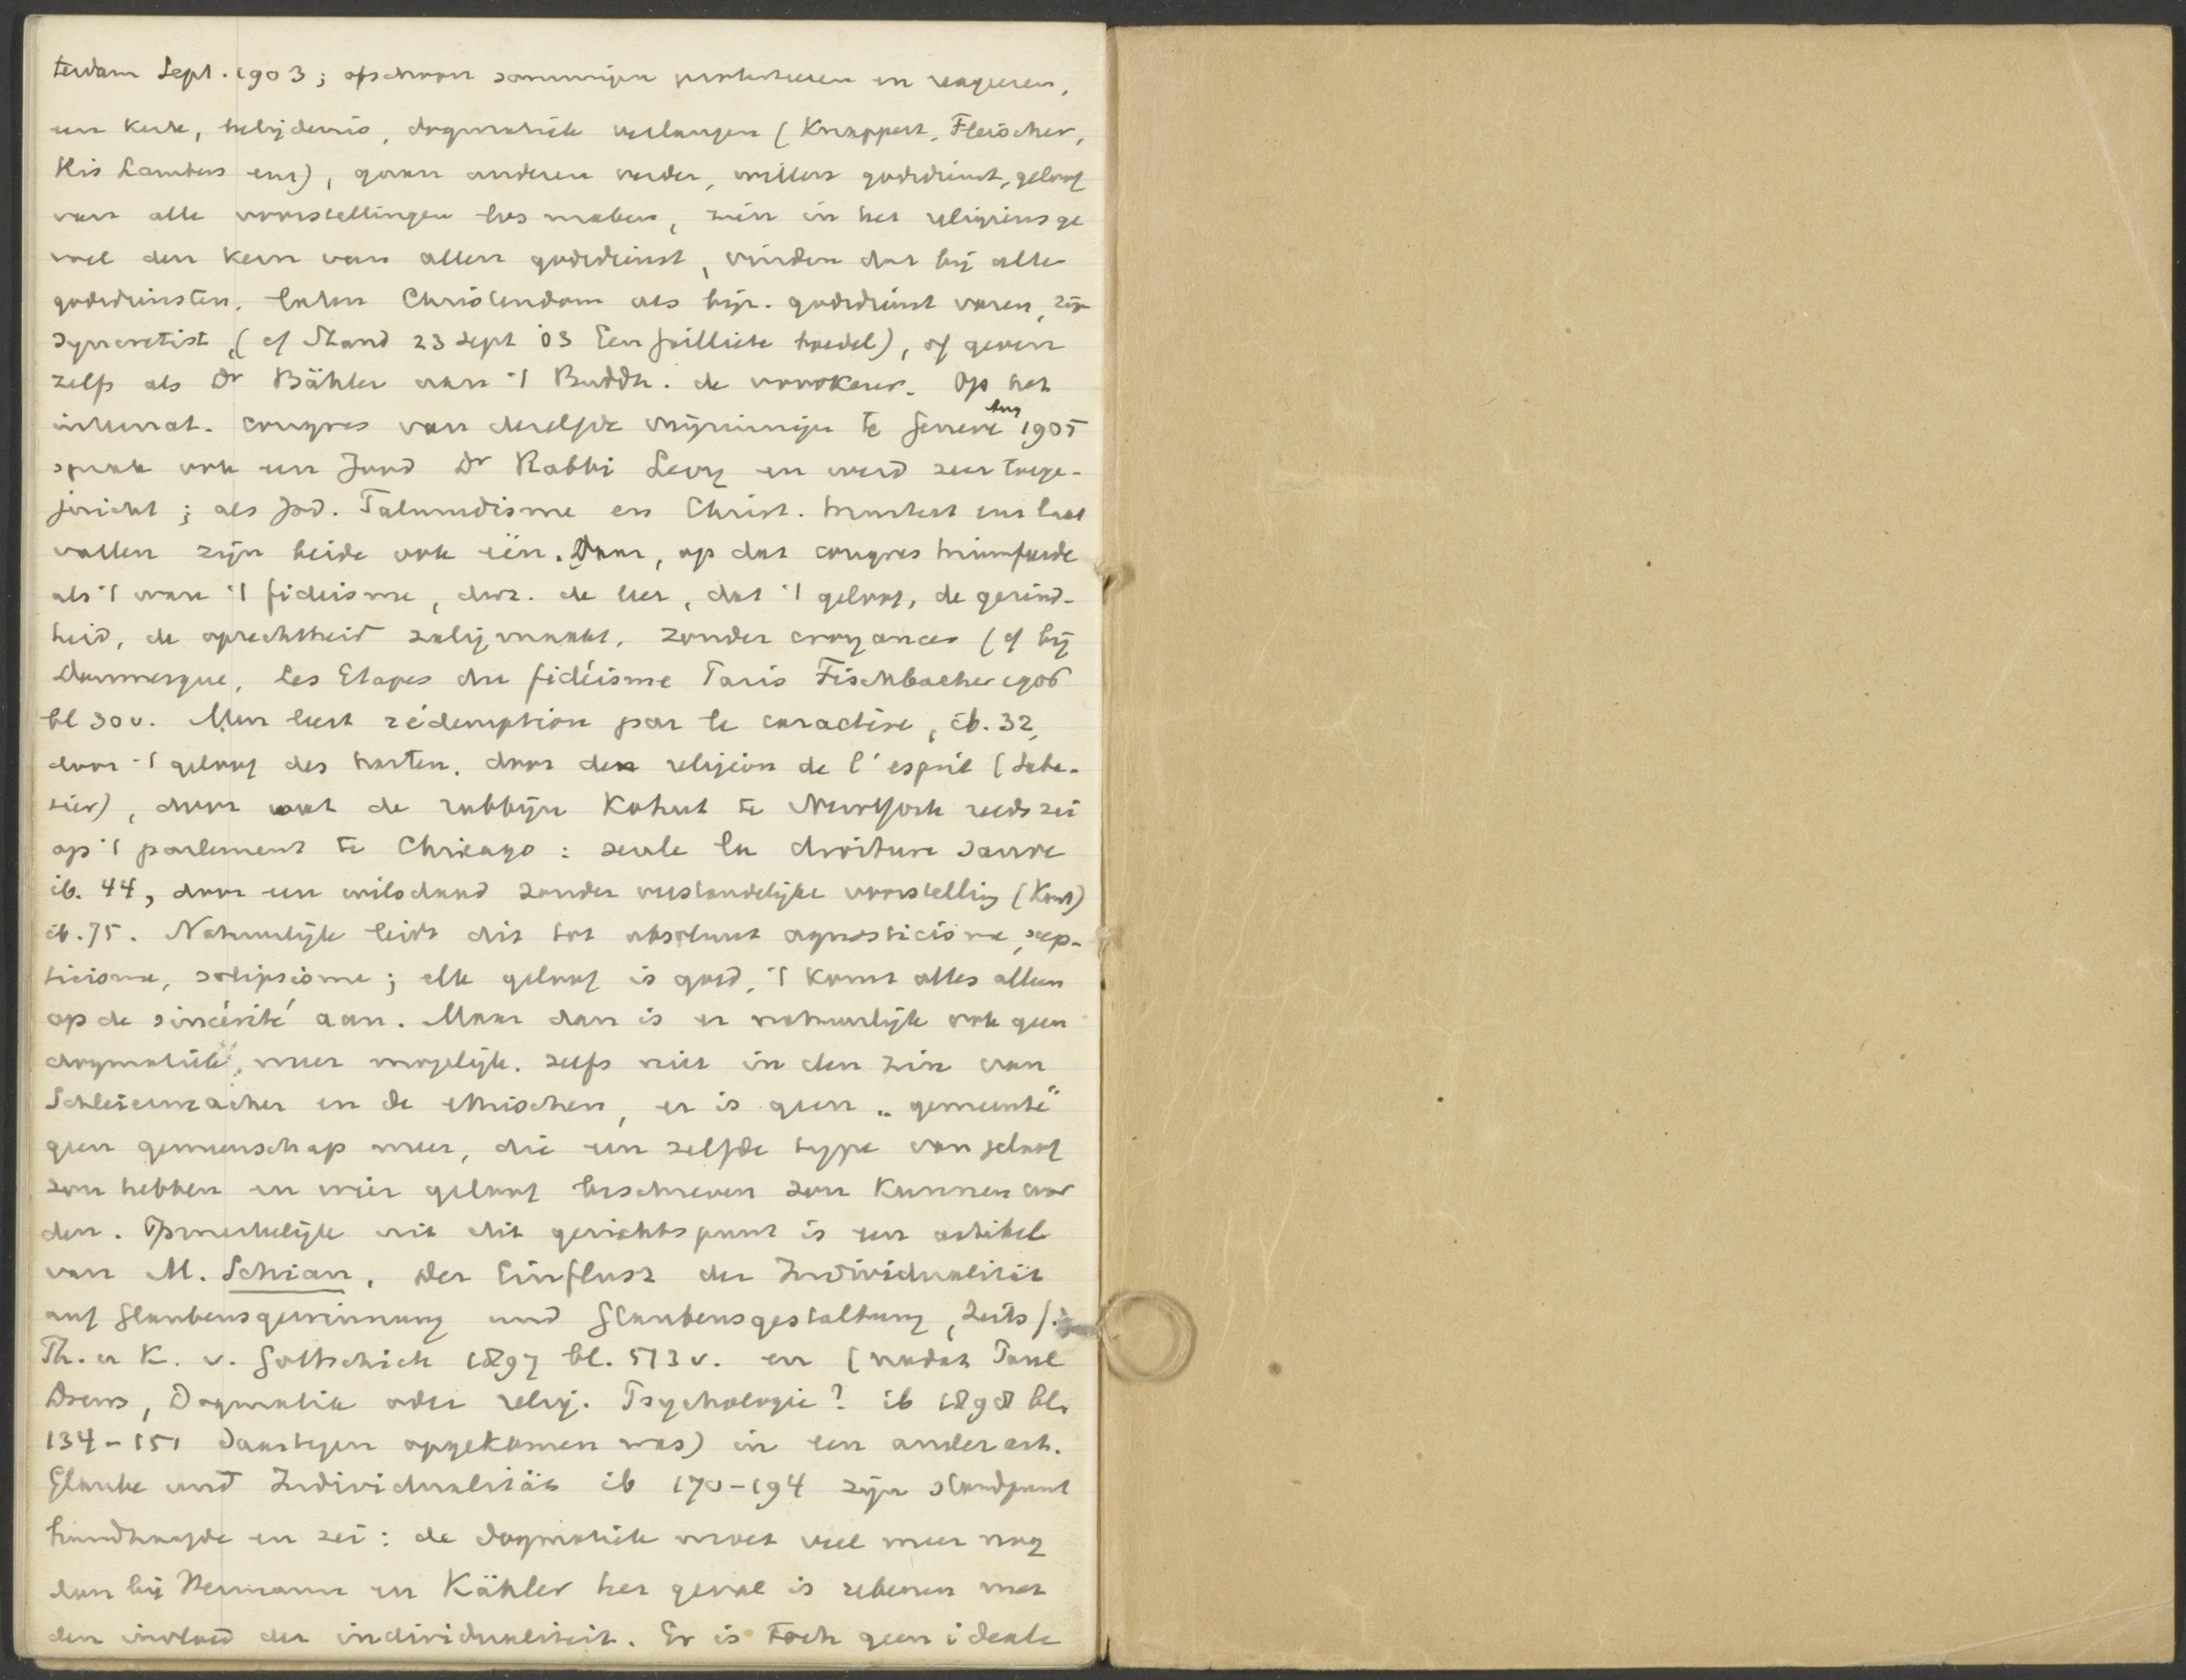 terdam Sept. 1903; ofschoon sommigen protesteeren en reageeren,
een kerk, belijdenis, dogmatiek verlangen (Knappert, Fleischer,
His Lambers enz), gaan anderen verder, willen godsdienst, geloof
van alle voorstellingen los maken, zien in het religieus ge
voel den kern van allen godsdienst, vinden dat bij alle
godsdiensten, laten Christendom als bijz. godsdienst varen, zijn
syncretist, (cf Stand 23 Sept 03 Een heilliche), of geven
zelfs als Dr Bähler aan 't Buddh. de voorkeur. Op het
internat. congres van diezelfde vrijzinnigen te Geneve Aug 1905
sprak ook een Jood Dr Rabbi Levy en werd zeer toege-
juicht; als Jod. Talmudisme en Christ. laat
vallen zijn beide ook één. Daar, op dat congres triumfeerde
als 't ware 't fideisme, dwz. de leer, dat 't geloof, de gezind-
heid, de oprechtheid zalig maakt, zonder croyances (cf bij
Doumergue, Les Etapes du fidéisme Paris Fischbacher 1906
bl 30 v. Men leert rédemption par le caractère, ib. 32,
door 't geloof des harten, door den religion de l'esprit (Saba-
tier), door wat de rabbijn Kohut te NewYork reeds zei
op 't parlement te Chicago: seule la droiture sauve
ib. 44, door een wilsdaad zonder verstandelijke voorstelling (Kant)
ib. 75. Natuurlijk leidt dit tot absoluut agnosticisme, scep-
ticisme, solipsisme; elk geloof is goed, 't komt alles alleen
op de sincérité aan. Maar dan is er natuurlijk ook geen
dogmatiek, meer mogelijk. zelfs niet in den zin van
Schleiermacher en de ethischen, er is geen „gemeente"
geen gemeenschap meer, die een zelfde type van geloof
zou hebben en wier geloof beschreven zou kunnen wor
den. Opmerkelijk uit dit gezichtspunt is een artikel
van M. Schian, Der Einflusz der Individualität
auf Glaubensgewinnung und Glaubensgestaltung, Zeits f.
Th. u K. v. Gottschick 1897 bl. 513 v. en (nadat Paul
Drews, Dogmatik oder relig. Psychologie? ib 1898 bl.
134-151 daartegen opgekomen was) in een ander art.
Glaube und Individualität ib 170-194 zijn standpunt
handhaafde en zei: de dogmatiek moet veel meer nog
dan bij Hermann en Kähler het geval is rekenen met
den invloed der individualiteit. Er is toch geen ideale